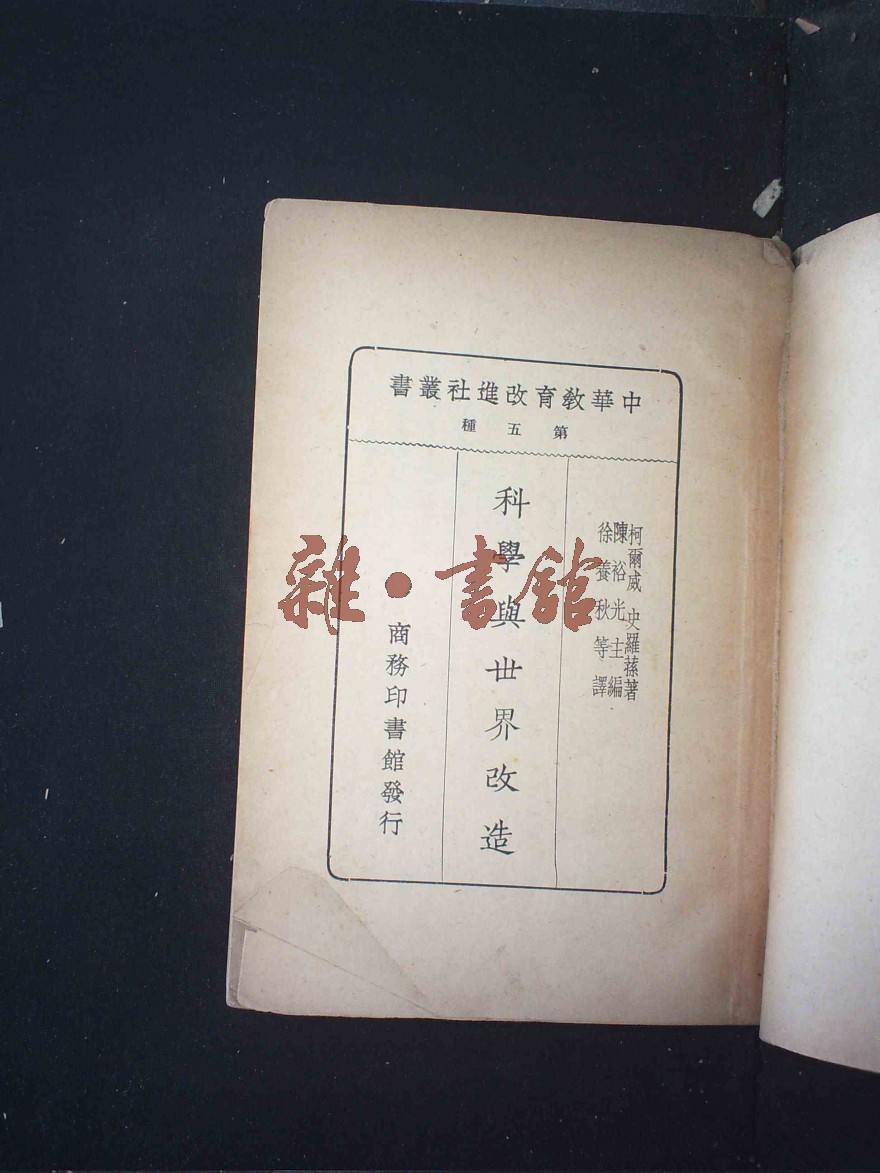 中華教育改進社叢書
第五種
柯爾威 史羅蓀著
陳裕光主編
徐養秋等譯
科學與世界改造
商務印書館發行
雜·書館